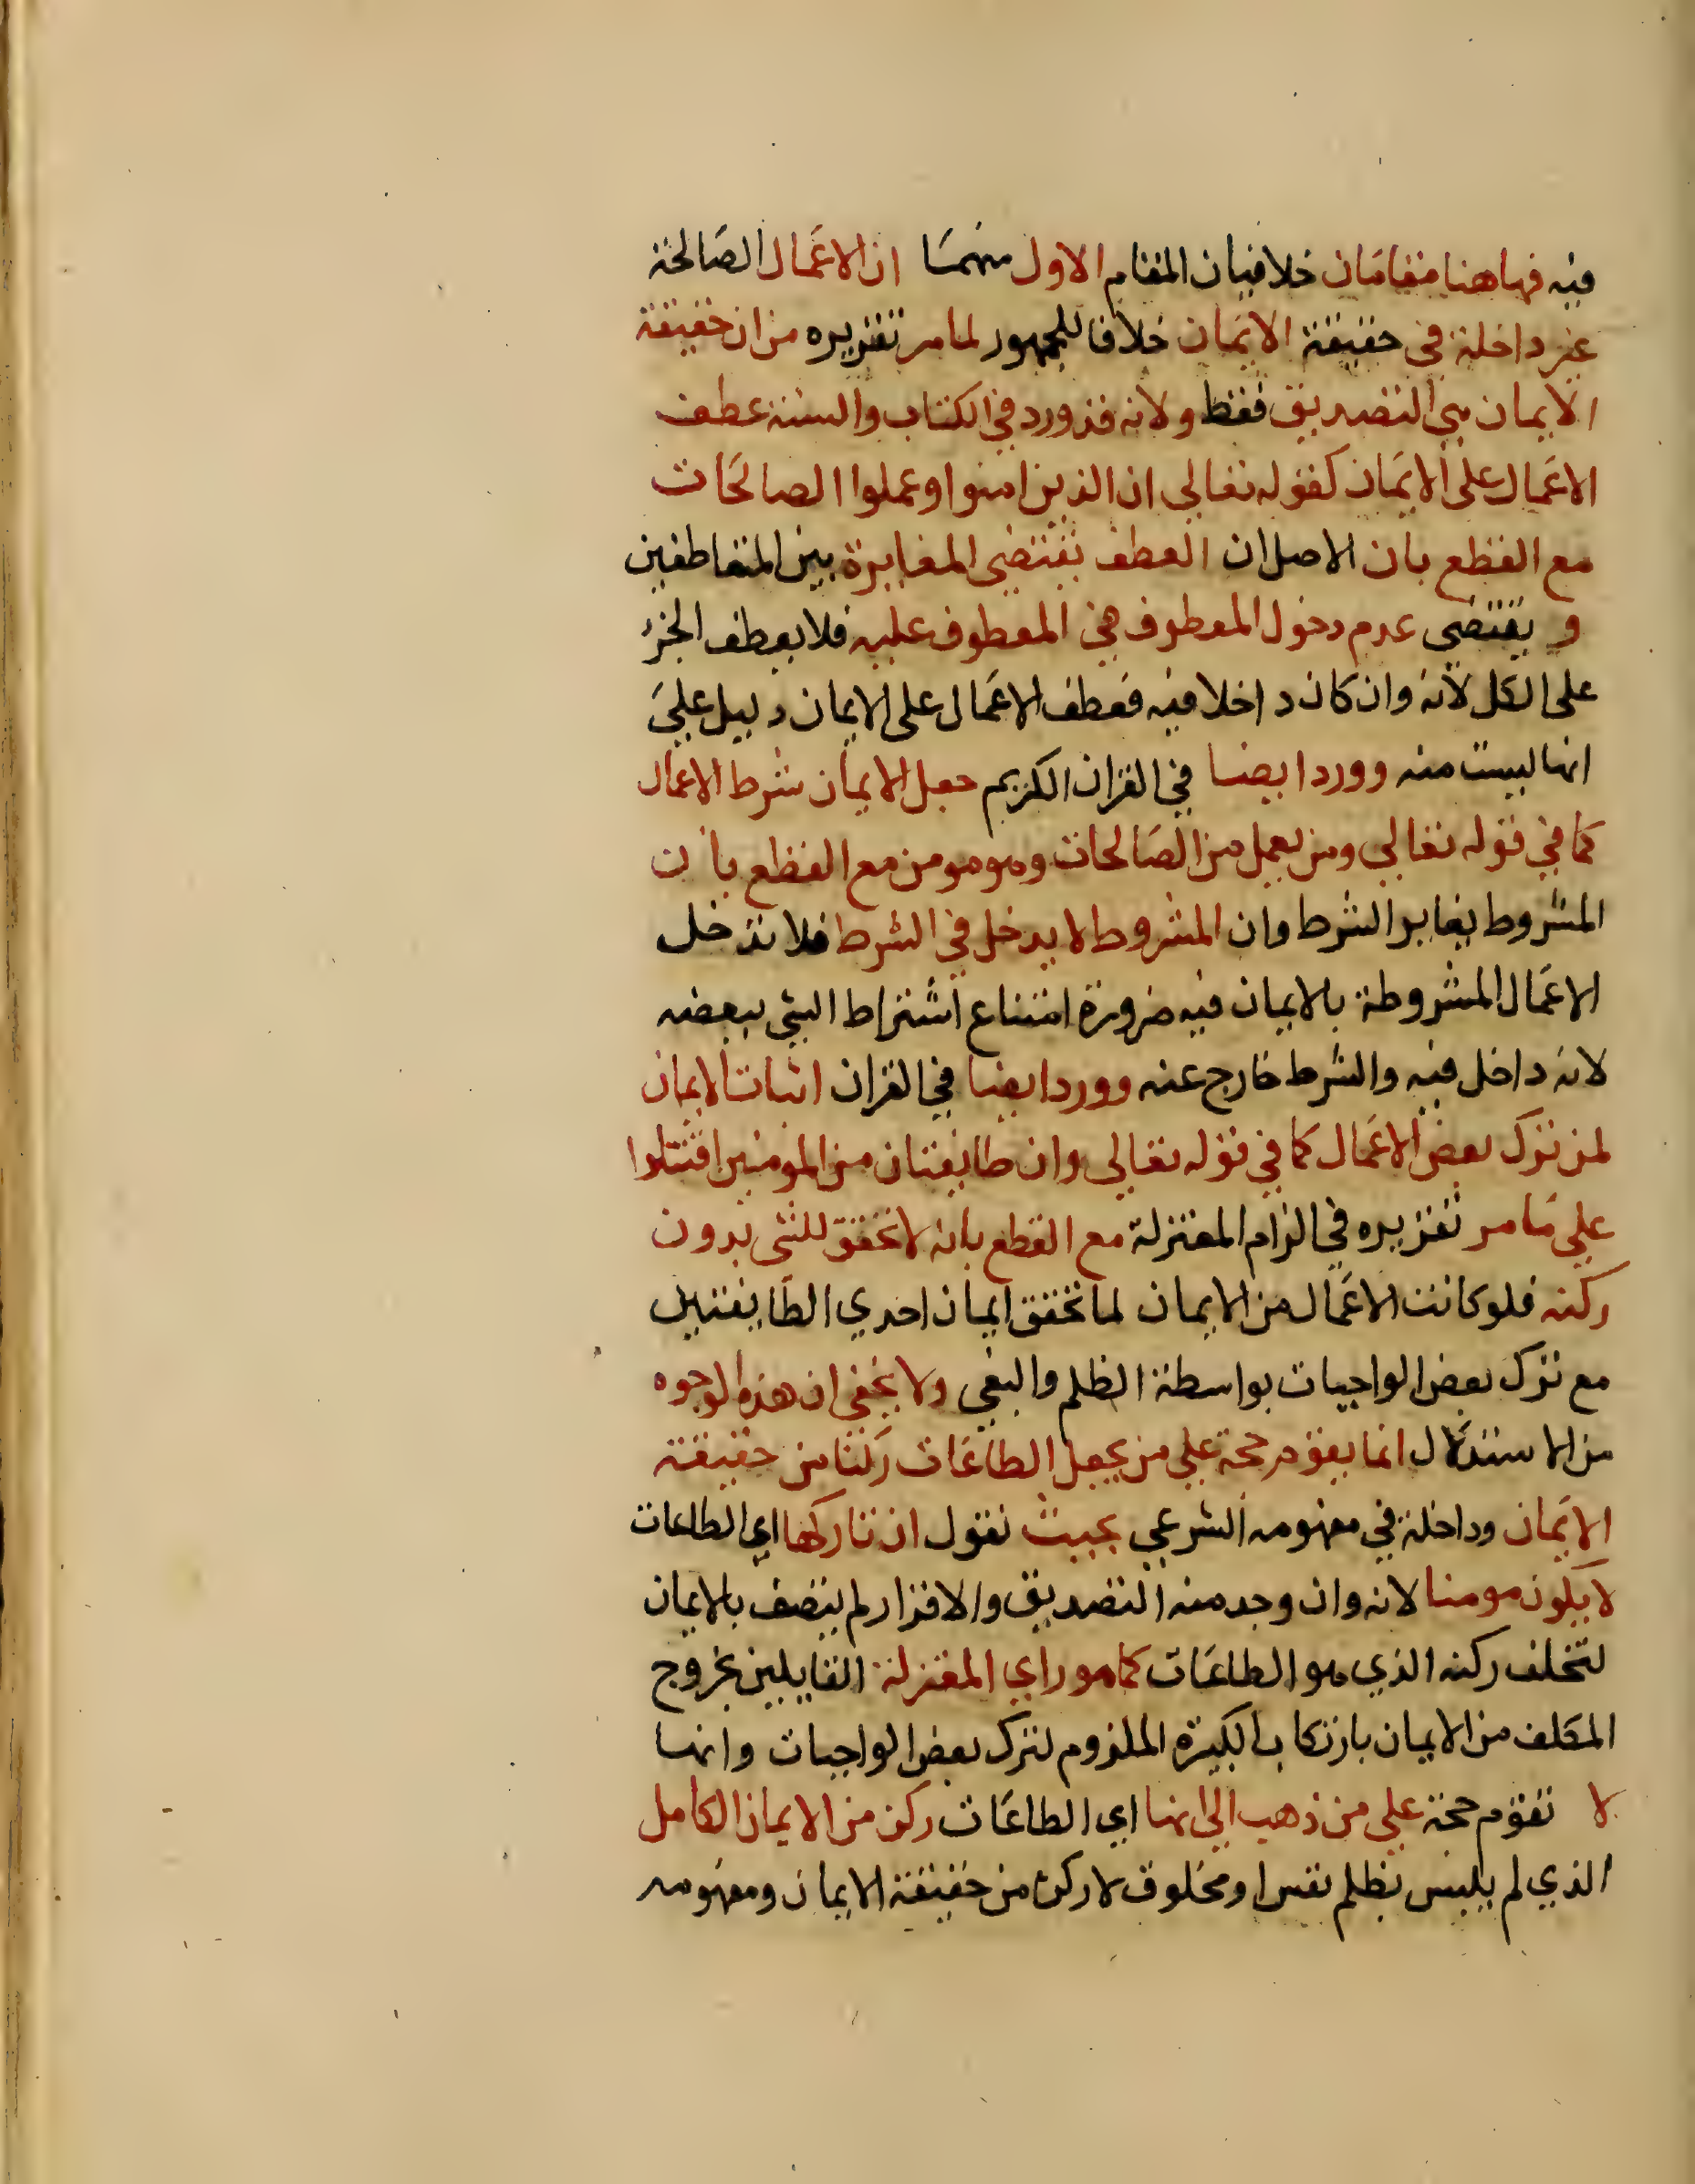 فيه فهاهنا مقامان خلافيان المقام الاول منهما ان الاعمال الصالحة
غير داخلة في حقيقة الايمان خلافا للجمهور لما مر تقريره من ان حقيقة
الايمان هي التصديق فقط ولانه قد ورد في الكتاب والسنة عطف
الاعمال على الايمان كقوله تعالي ان الذين امنوا وعملوا الصالحات
مع القطع بان الاصل ان العطف يقتضي المغايرة بين المتعاطفين
و يقتضي عدم دخول المعطوف في المعطوف عليه فلا يعطف الجزء
على الكل لانه وان كان داخلا فيه فعطف الاعمال على الايمان دليل علي
انها ليست منه وورد ايضا في القران الكريم جعل الايمان شرط الاعمال
كما في قوله تعالي ومن يعمل من الصالحات وهو مومن مع القطع بان
المشروط يغاير الشرط وان المشروط لا يدخل في الشرط فلا تدخل
الاعمال المشروطة بالايمان فيه ضرورة امتناع اشتراط الشي ببعضه
لانه داخل فيه والشرط خارج عنه وورد ايضا في القران اثبات الايمان
لمن ترك بعض الاعمال كما في قوله تعالي وان طايفتان من المومنين اقتتلوا
علي ما مر تقريره في الزام المعتزلة مع القطع بانه لا تحقق للشي بدون
ركنه فلو كانت الاعمال من الايمان لما تحقق ايمان احدي الطايفتين
مع ترك بعض الواجبات بواسطة الظلم والبغي ولا يخفي ان هذه الوجوه
من الاستدلال انما يقوم حجة علي من يجعل الطاعات ركنا من حقيقة
الايمان وداخلة في مفهومه الشرعي بحيث نقول ان تاركها اي الطاعات
لا يكون مومنا لانه وان وجد منه التصديق والاقرار لم يتصف بالايمان
لتخلف ركنه الذي هو الطاعات كما هو راي المعتزلة القايلين بخروج
المكلف من الايمان بارتكاب الكبيرة الملزوم لترك بعض الواجبات وانها
لا تقوم حجة علي من ذهب الي انها اي الطاعات ركن من الايمان الكامل
الذي لم يلبس بظلم نفس او مخلوق لا ركن من حقيقة الايمان ومفهومه